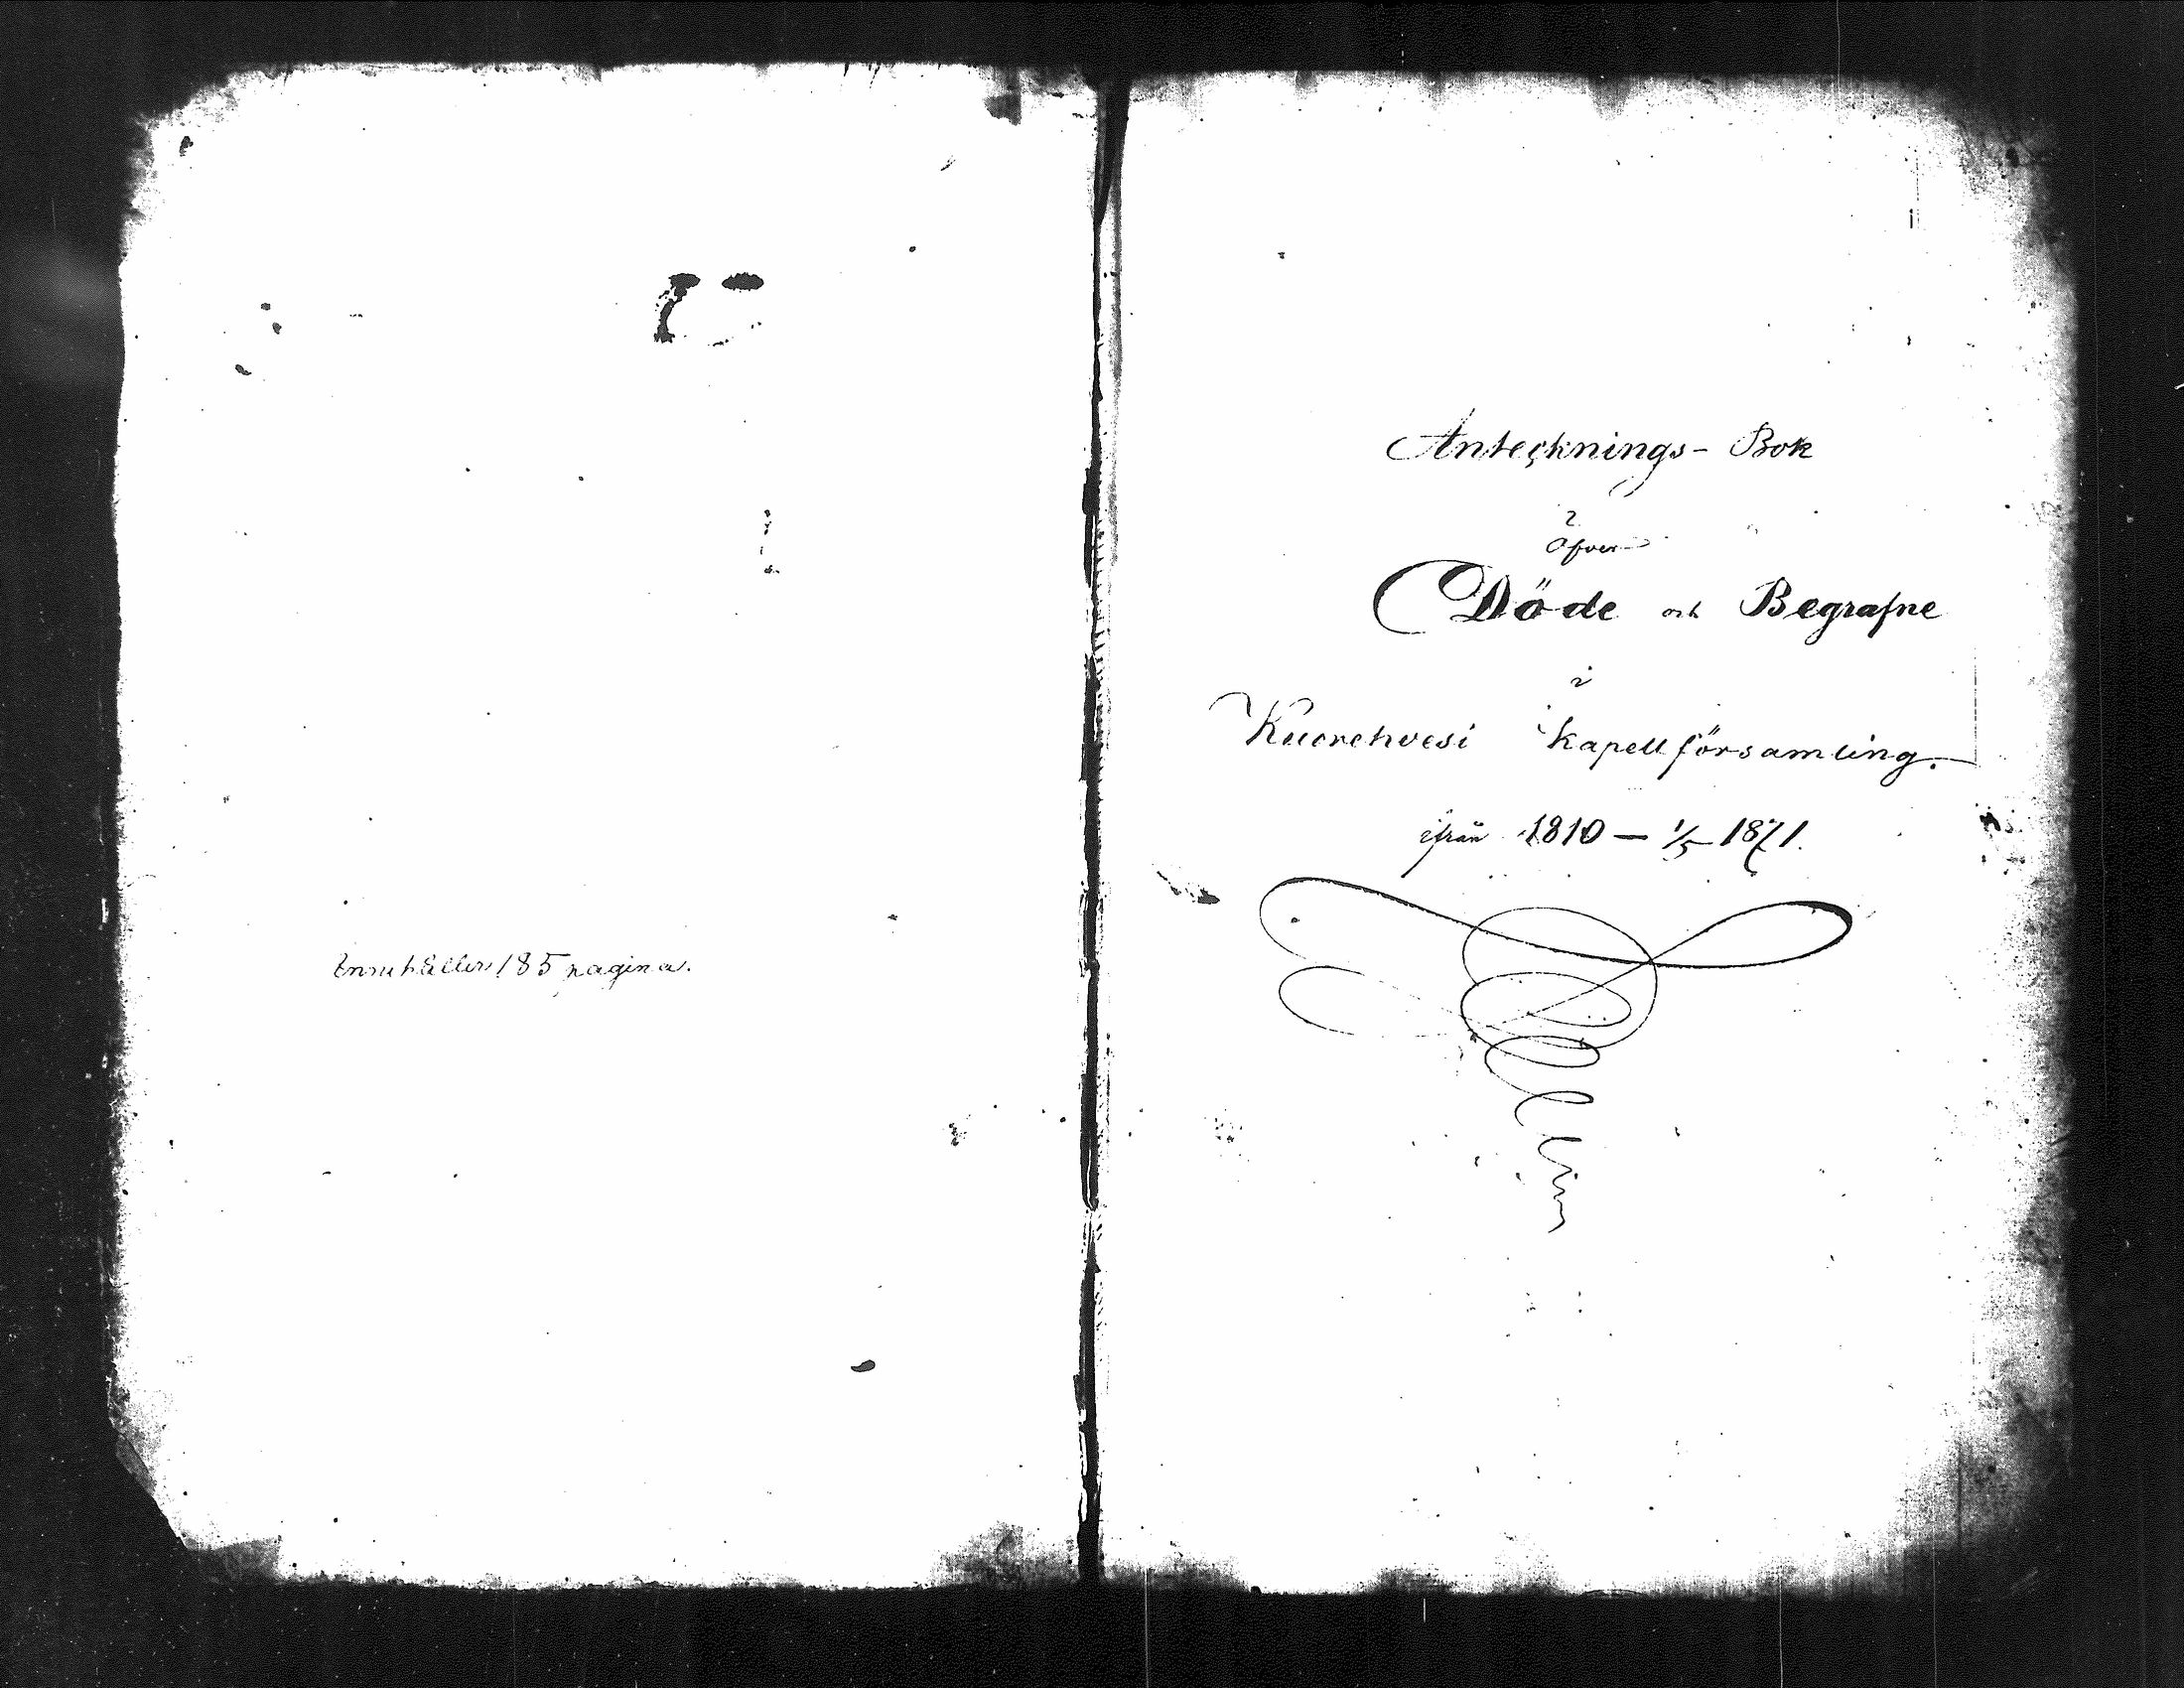 Innehåller 185 pagina.
Antecknings-Bok
öfver
Döde och Begrafne
i
Kuorehvesi Kapellförsamling.
ifrån 1810 — 1/5 1871.